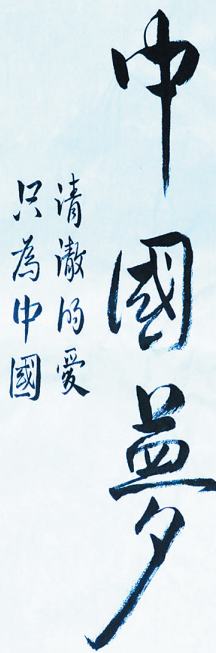 中國夢
清澈的愛
只為中國